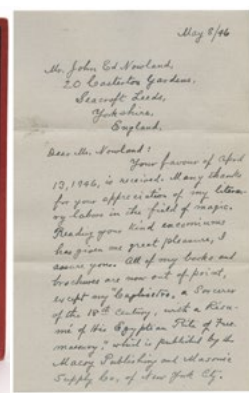 May 8/46
Mr. John Ed Nowland,
20 Easterton Gardens,
Seacroft Leeds,
Yorkshire,
England.
Dear Mr. Nowland:
Your favour of April
13, 1946, is received. Many thanks
for your appreciation of my liter-
ary labors in the field of magic.
Reading your kind encomiums
has given me great pleasure, I
assure you. All of my books and
brochures are now out of print,
except my Cagliostro, a Sorcerer
of the 18th Century, with a Resu-
mé of His Egyptian Rite of Free-
masonry," which is published by the
Macoy Publishing and Masonic
Supply Co, of New York City.